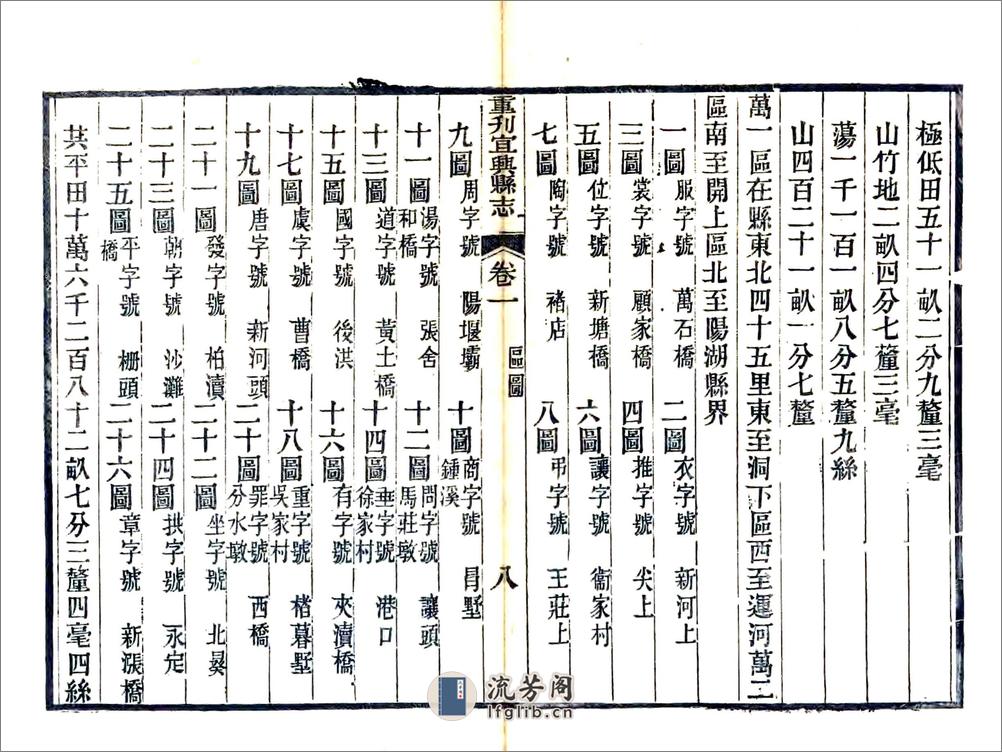 極低田五十一畝二分九釐三毫
山竹地二畝四分七釐三毫
蕩一千一百一畝八分五釐九絲
山四百二十一畝一分七釐
萬一區在縣東北四十五里東至洞下區西至運河萬二
區南至開上區北至陽湖縣界
一圖 服字號 萬石橋 二圖 衣字號 新河上
三圖 裳字號 顧家橋 四圖 推字號 尖上
五圖 位字號 新塘橋 六圖 讓字號 衞家村
七圖 陶字號 褚店 八圖 弔字號 王莊上
重刋宜興縣志 卷一 區圖 八
九圖 周字號 陽堰壩 十圖 商字號 墅 鍾溪
十一圖 湯字號 張舍 和橋 十二圖 問字號 讓頭 馬莊墩
十三圖 道字號 黃土橋 十四圖 垂字號 港口 徐家村
十五圖 國字號 後洪 十六圖 有字號 夾瀆橋
十七圖 虞字號 曹橋 十八圖 重字號 楮暮墅 吳家村
十九圖 唐字號 新河頭 二十圖 罪字號 西橋 分水墩
二十一圖 發字號 柏瀆 二十二圖 坐字號 北
二十三圖 朝字號 沙灘 二十四圖 拱字號 永定
二十五圖 平字號 柵頭 橋 二十六圖 章字號 新漲橋
共平田十萬六千二百八十二畝七分三釐四毫四絲
流芳阁
lfglib.cn